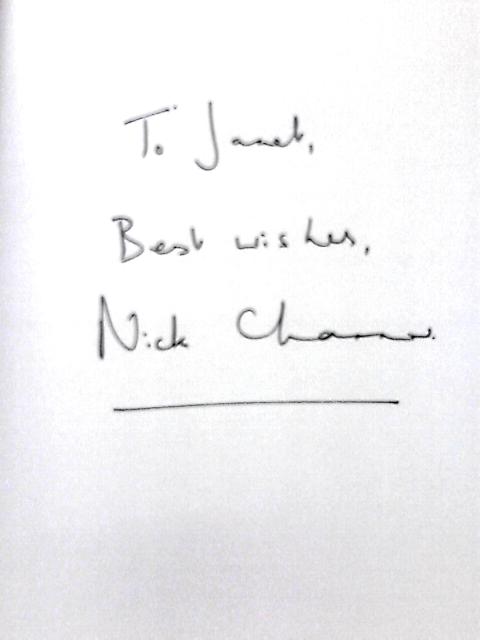 To Janet,
Best wishes,
Nick